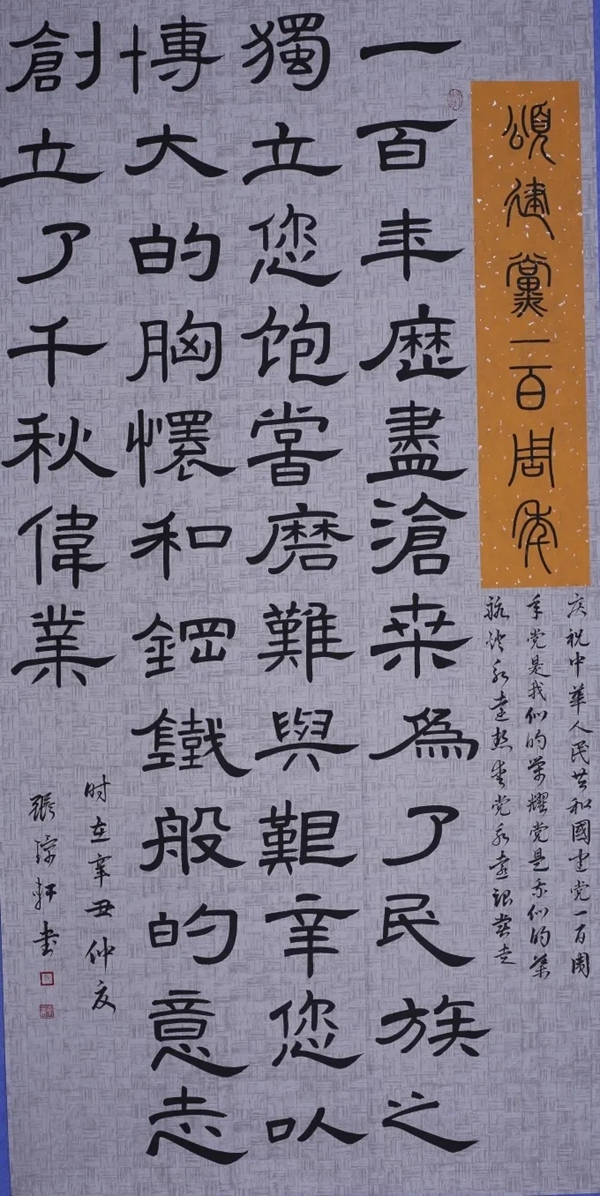 頌建黨一百周年
庆祝中華人民共和國建党一百周
年党是我们的荣耀党是我们的
永遠热爱党永遠跟党走
一百年歷盡滄桒爲了民族之
獨立您饱嘗磨難與艱辛您以
博大的胸懷和鋼鐵般的意志
創立了千秋偉業
时在辛丑仲夏
張琮軒書